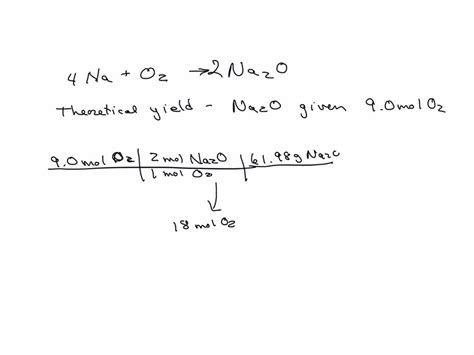 4 Na + O2 → 2 Na2O
Theoretical yield - Na2O given 9.0 mol O2
9.0 mol O2 | 2 mol Na2O | 61.98g Na2O
1 mol O2
18 mol O2